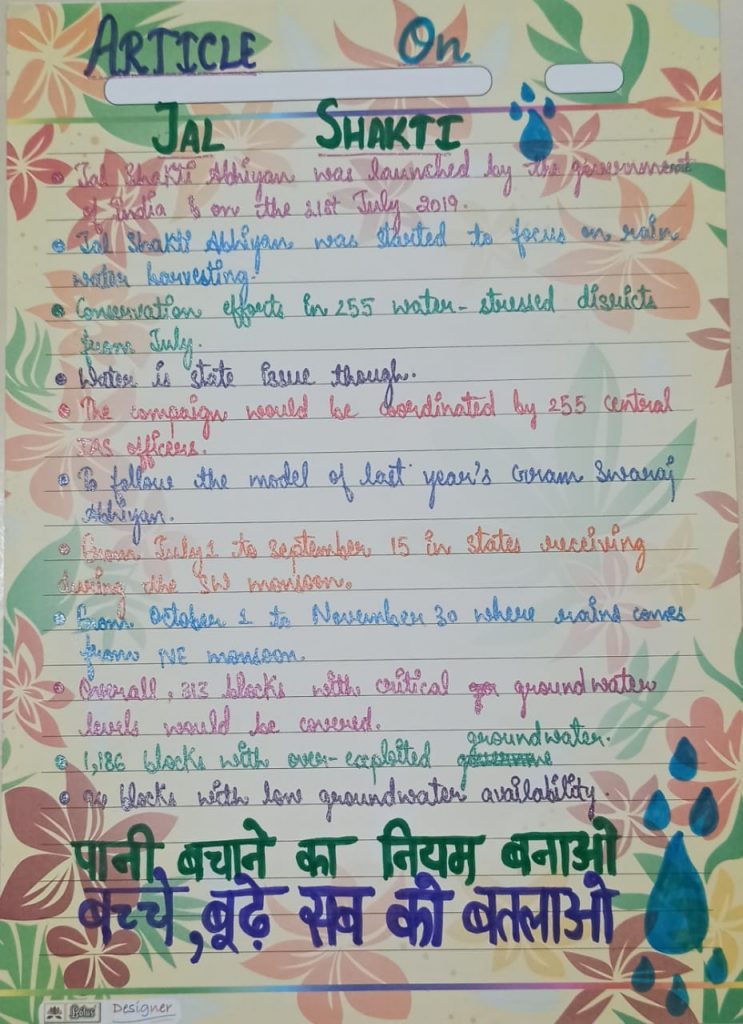 ARTICLE On
JAL SHAKTI
• Jal Shakti Abhiyan was launched by the government
of India & on the 21st July 2019.
• Jal Shakti Abhiyan was started to focus on rain
water harvesting.
• Conservation efforts in 255 water-stressed districts
from July.
• Water is state issue though.
• The campaign would be coordinated by 255 central
IAS officers.
• To follow the model of last year's Gram Swaraj
Abhiyan.
• From July 1 to september 15 in states receiving
during the SW monsoon.
• From October 1 to November 30 where rains comes
from NE monsoon.
• Overall, 313 blocks with critical groundwater
levels would be covered.
• 1,186 blocks with over-exploited groundwater.
• 94 blocks with low groundwater availability.
पानी बचाने का नियम बनाओ
बच्चे, बूढ़े सब को बतलाओ
Lotus Designer